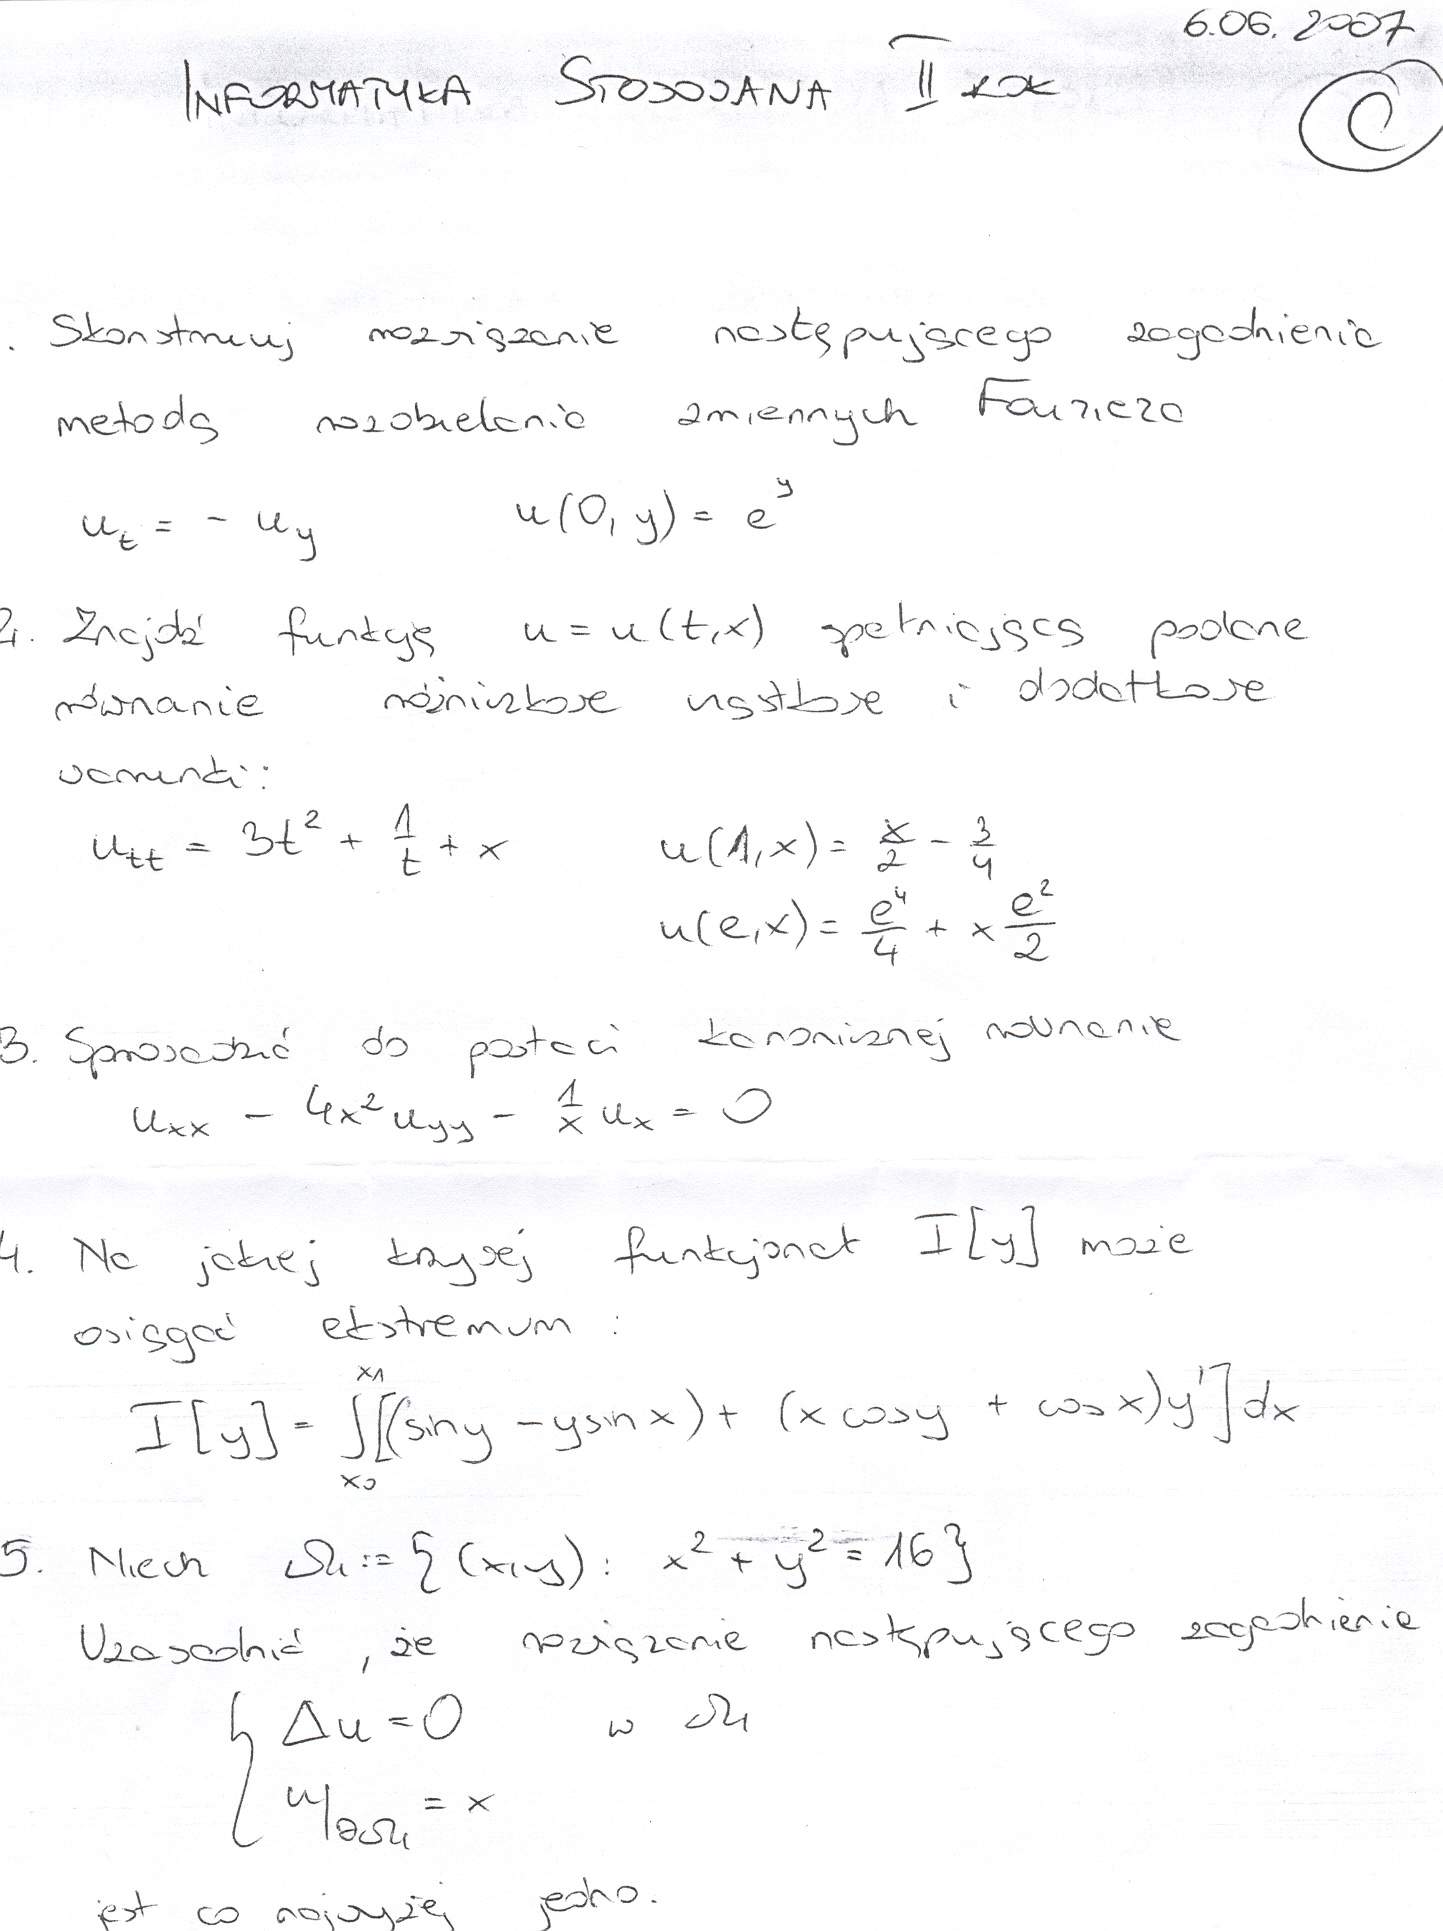 6.06.2007
INFORMATYKA STOSOWANA II rok
C
. Skonstruuj rozwiązanie następującego zagadnienia
metodą rozdzielania zmiennych Fouriera
u_t = - u_y    u(0, y) = e^y
2. Znajdź funkcję u = u(t,x) spełniającą podane
równanie różniczkowe cząstkowe i dodatkowe
warunki:
u_tt = 3t^2 + 1/t + x    u(1,x) = x/2 - 3/4
u(e,x) = e^4/4 + x e^2/2
3. Sprowadzić do postaci kanonicznej równanie
u_xx - 4x^2 u_yy - 1/x u_x = 0
4. Na jakiej krzywej funkcjonał I[y] może
osiągać ekstremum :
I[y] = ∫_{x0}^{x1} [(sin y - y sin x) + (x cos y + cos x) y'] dx
5. Niech Ω := { (x,y) : x^2 + y^2 = 16 }
Uzasadnić, że rozwiązanie następującego zagadnienia
{ Δu = 0    w Ω
u|_∂Ω = x
jest co najwyżej jedno.